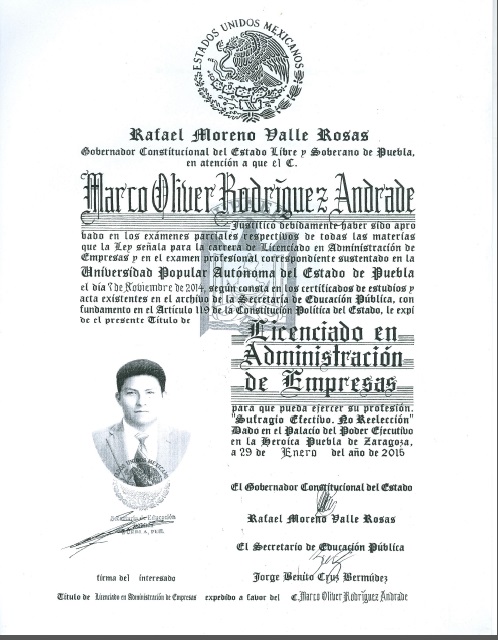 ESTADOS UNIDOS MEXICANOS
Rafael Moreno Valle Rosas
Gobernador Constitucional del Estado Libre y Soberano de Puebla,
en atención a que el C.
Marco Oliver Rodríguez Andrade
Justificó debidamente haber sido apro
bado en los exámenes parciales respectivos de todas las materias
que la Ley señala para la carrera de Licenciado en Administración de
Empresas y en el examen profesional correspondiente sustentado en la
Universidad Popular Autónoma del Estado de Puebla
el día 7 de Noviembre de 2014, según consta en los certificados de estudios y
acta existentes en el archivo de la Secretaría de Educación Pública, con
fundamento en el Artículo 119 de la Constitución Política del Estado, le expi
de el presente Título de
Licenciado en
Administración
de Empresas
para que pueda ejercer su profesión.
"Sufragio Efectivo. No Reelección"
Dado en el Palacio del Poder Ejecutivo
en la Heroica Puebla de Zaragoza,
a 29 de Enero del año de 2015
ESTADOS UNIDOS MEXICANOS
Secretaría de Educación
El Gobernador Constitucional del Estado
Rafael Moreno Valle Rosas
El Secretario de Educación Pública
firma del interesado
Jorge Benito Cruz Bermúdez
Título de Licenciado en Administración de Empresas expedido a favor del C. Marco Oliver Rodríguez Andrade